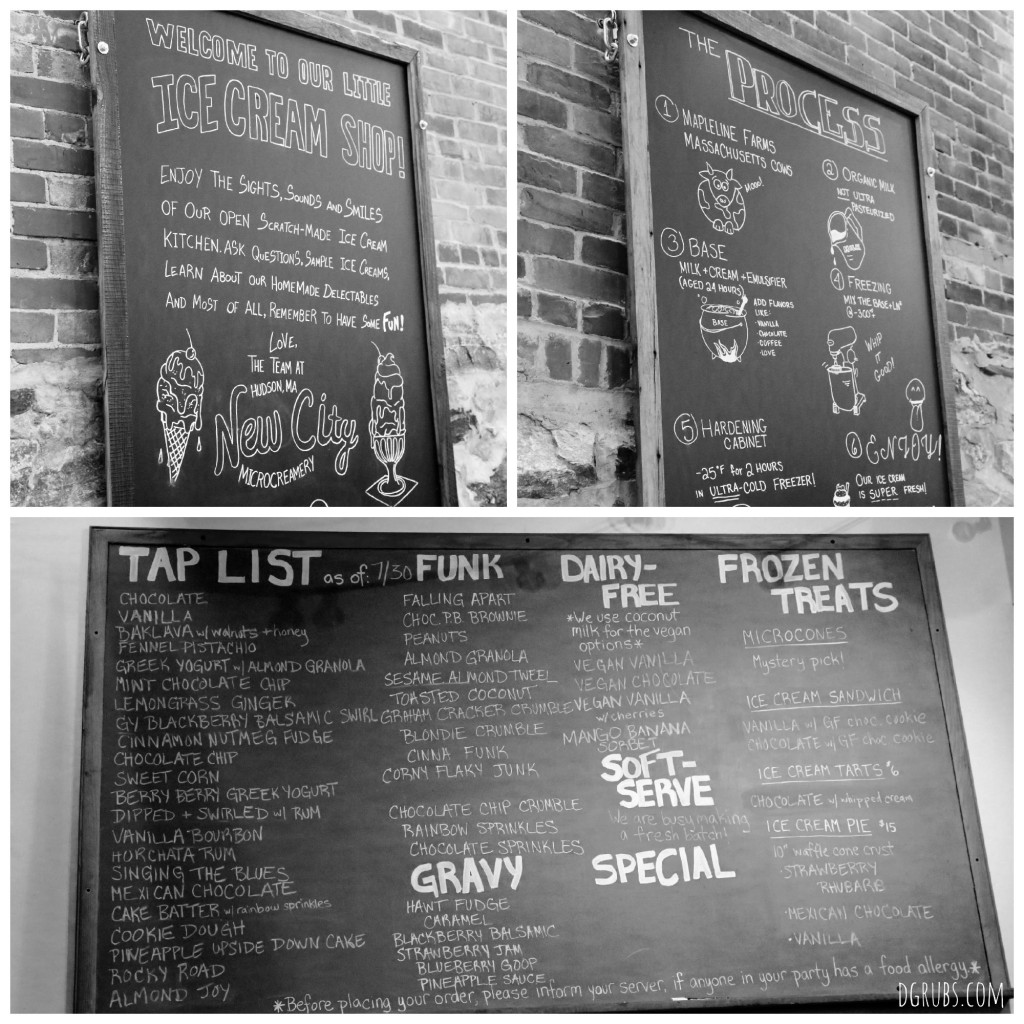 WELCOME TO OUR LITTLE
ICE CREAM SHOP!
ENJOY THE SIGHTS, SOUNDS AND SMILES
OF OUR OPEN SCRATCH-MADE ICE CREAM
KITCHEN. ASK QUESTIONS, SAMPLE ICE CREAMS,
LEARN ABOUT OUR HOMEMADE DELECTABLES
AND MOST OF ALL, REMEMBER TO HAVE SOME FUN!
LOVE,
THE TEAM AT
HUDSON, MA
New City
MICROCREAMERY
THE
PROCESS
1 MAPLELINE FARMS
MASSACHUSETTS COWS
MOOO!
2 ORGANIC MILK
NOT ULTRA
PASTEURIZED
3 BASE
MILK + CREAM + EMULSIFIER
(AGED 24 HOURS)
BASE
ADD FLAVORS
LIKE:
·VANILLA
·CHOCOLATE
·COFFEE
·LOVE
4 FREEZING
MIX THE BASE + LN²
@ -300°
WHIP
IT
GOOD!
5 HARDENING
CABINET
-25°F for 2 HOURS
IN ULTRA-COLD FREEZER!
6 ENJOY!
OUR ICE CREAM
IS SUPER FRESH!
TAP LIST as of: 7/30
CHOCOLATE
VANILLA
BAKLAVA w/ walnuts + honey
FENNEL PISTACHIO
GREEK YOGURT w/ ALMOND GRANOLA
MINT CHOCOLATE CHIP
LEMONGRASS GINGER
GY BLACKBERRY BALSAMIC SWIRL
CINNAMON NUTMEG FUDGE
CHOCOLATE CHIP
SWEET CORN
BERRY BERRY GREEK YOGURT
DIPPED + SWIRLED w/ RUM
VANILLA BOURBON
HORCHATA RUM
SINGING THE BLUES
MEXICAN CHOCOLATE
CAKE BATTER w/ rainbow sprinkles
COOKIE DOUGH
PINEAPPLE UPSIDE DOWN CAKE
ROCKY ROAD
ALMOND JOY
FUNK
FALLING APART
CHOC. P.B. BROWNIE
PEANUTS
ALMOND GRANOLA
SESAME ALMOND TWEEL
TOASTED COCONUT
GRAHAM CRACKER CRUMBLE
BLONDIE CRUMBLE
CINNA FUNK
CORNY FLAKY JUNK
CHOCOLATE CHIP CRUMBLE
RAINBOW SPRINKLES
CHOCOLATE SPRINKLES
GRAVY
HAWT FUDGE
CARAMEL
BLACKBERRY BALSAMIC
STRAWBERRY JAM
BLUEBERRY GOOP
PINEAPPLE SAUCE
DAIRY-
FREE
*We use coconut
milk for the vegan
options*
VEGAN VANILLA
VEGAN CHOCOLATE
VEGAN VANILLA
w/ cherries
MANGO BANANA
SORBET
SOFT-
SERVE
We are busy making
a fresh batch!
SPECIAL
FROZEN
TREATS
MICROCONES
Mystery pick!
ICE CREAM SANDWICH
VANILLA w/ GF choc. cookie
CHOCOLATE w/ GF choc. cookie
ICE CREAM TARTS $6
CHOCOLATE w/ whipped cream
ICE CREAM PIE $15
10" waffle cone crust
·STRAWBERRY
RHUBARB
·MEXICAN CHOCOLATE
·VANILLA
*Before placing your order, please inform your server, if anyone in your party has a food allergy.*
DGRUBS.COM